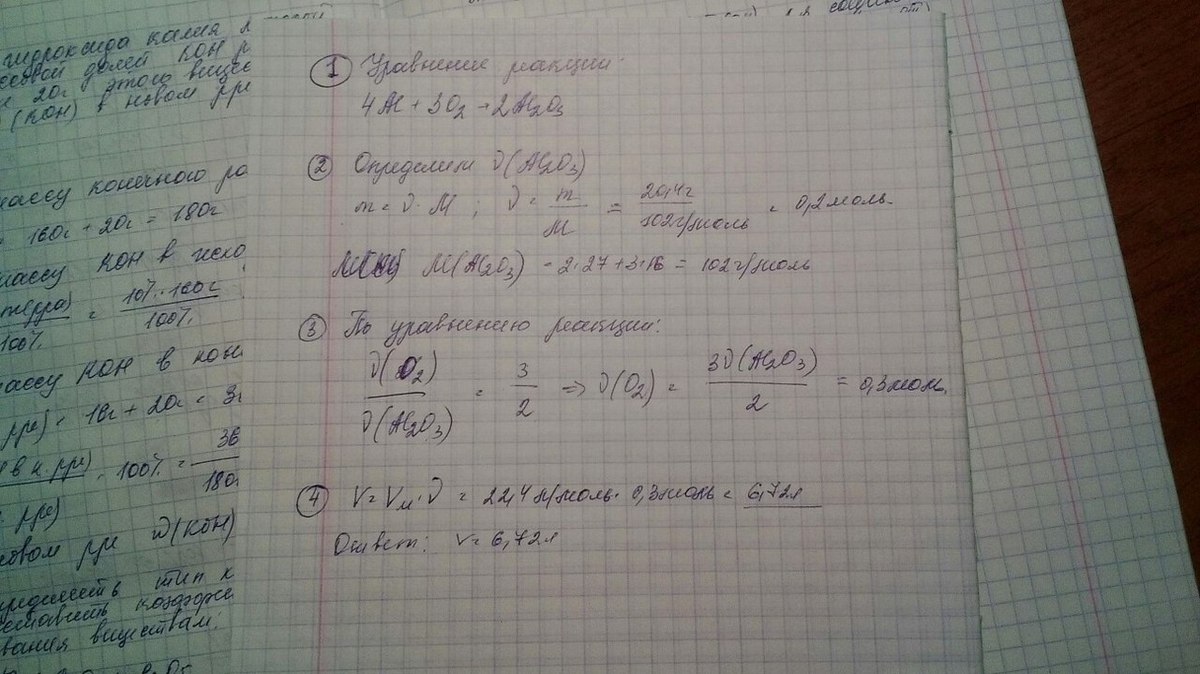 гидроксида калия
совой долей КОН
20г этого
(КОН) в новом рре
массу конечного
160г + 20г = 180г
массу КОН в
10%·160г
100%
=
100%
массу КОН в
рре) = 16г + 20г = 3
в к. рре) · 100% = 36
180г
рре)
новом рре ω(КОН)
тип
вания веществам:
① Уравнение реакции:
4Al + 3O₂ → 2Al₂O₃
② Определим ν(Al₂O₃)
m = ν · M ; ν = m/M = 20,4г/102г/моль = 0,2моль.
M(Al₂O₃) = 2·27+3·16 = 102г/моль
③ По уравнению реакции:
ν(O₂)/ν(Al₂O₃) = 3/2 => ν(O₂) = 3ν(Al₂O₃)/2 = 0,3моль.
④ V = Vм·ν = 22,4л/моль · 0,3моль = 6,72л
Ответ: V = 6,72л